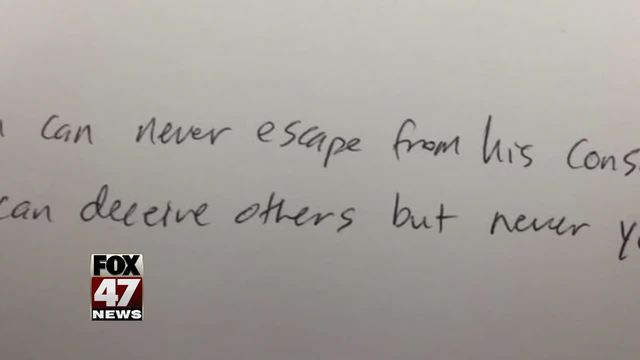 can never escape from his
can deceive others but never
FOX
47
NEWS